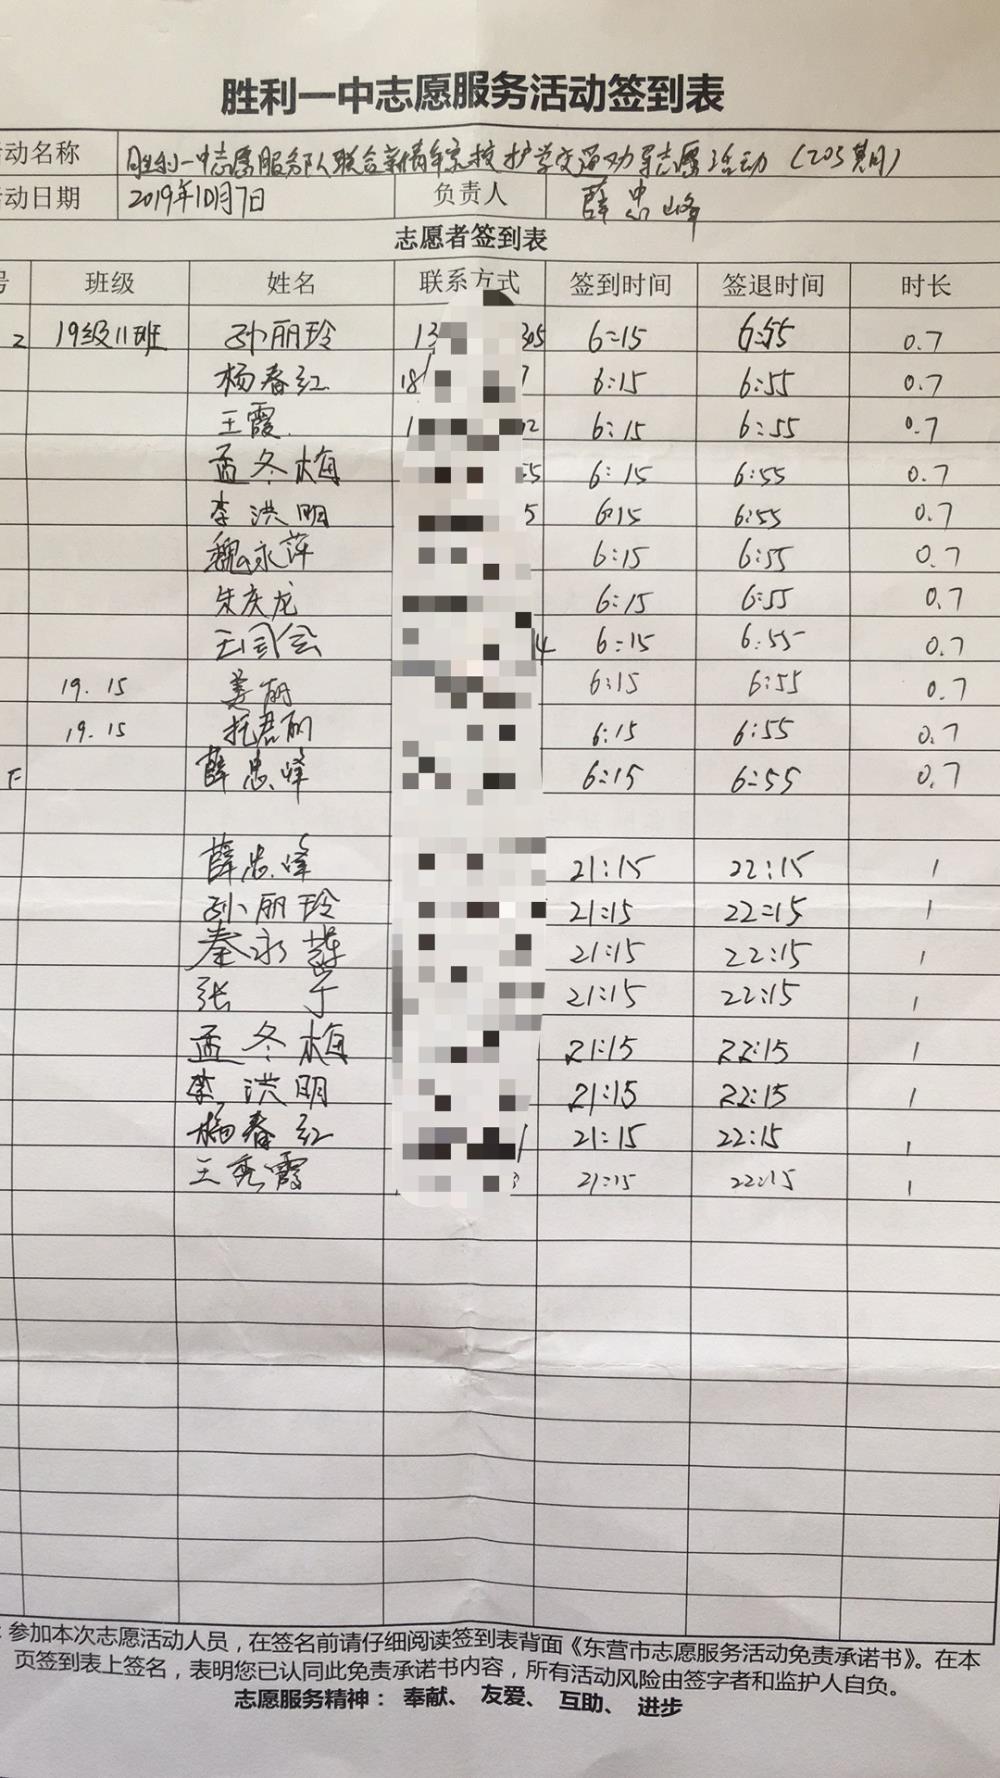 胜利一中志愿服务活动签到表
动名称 胜利一中志愿服务队联合 护学交通劝导志愿活动（205期）
动日期 2019年10月7日 负责人 薛忠峰
志愿者签到表
号 班级 姓名 联系方式 签到时间 签退时间 时长
2 19级11班 孙丽玲 13 305 6:15 6:55 0.7
杨春红 18 6:15 6:55 0.7
王霞 1 02 6:15 6:55 0.7
孟冬梅 55 6:15 6:55 0.7
李洪明 5 6:15 6:55 0.7
魏永萍 6:15 6:55 0.7
朱庆龙 6:15 6:55 0.7
王同会 4 6:15 6:55 0.7
19.15 姜丽 6:15 6:55 0.7
19.15 托君丽 6:15 6:55 0.7
薛忠峰 6:15 6:55 0.7
薛忠峰 21:15 22:15 1
孙丽玲 21:15 22:15 1
秦永慧 21:15 22:15 1
张于 21:15 22:15 1
孟冬梅 21:15 22:15 1
李洪明 21:15 22:15 1
杨春红 21:15 22:15 1
王秀霞 3 21:15 22:15 1
：参加本次志愿活动人员，在签名前请仔细阅读签到表背面《东营市志愿服务活动免责承诺书》。在本
页签到表上签名，表明您已认同此免责承诺书内容，所有活动风险由签字者和监护人自负。
志愿服务精神：奉献、友爱、互助、进步